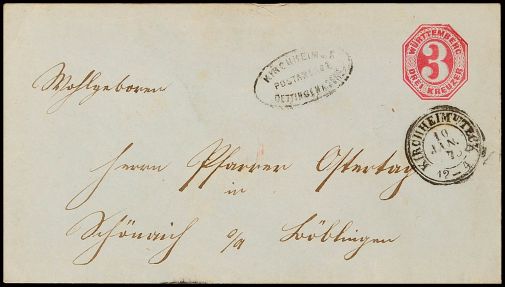 WÜRTTEMBERG
3
DREI KREUZER
KIRCHHEIM u. T.
POSTABLGE.
OETTINGEN
KIRCHHEIM u/TECK
10
JAN.
12
Wohlgeboren
Herrn Pfarrer Ostertag
in
Schönaich o/a Böblingen